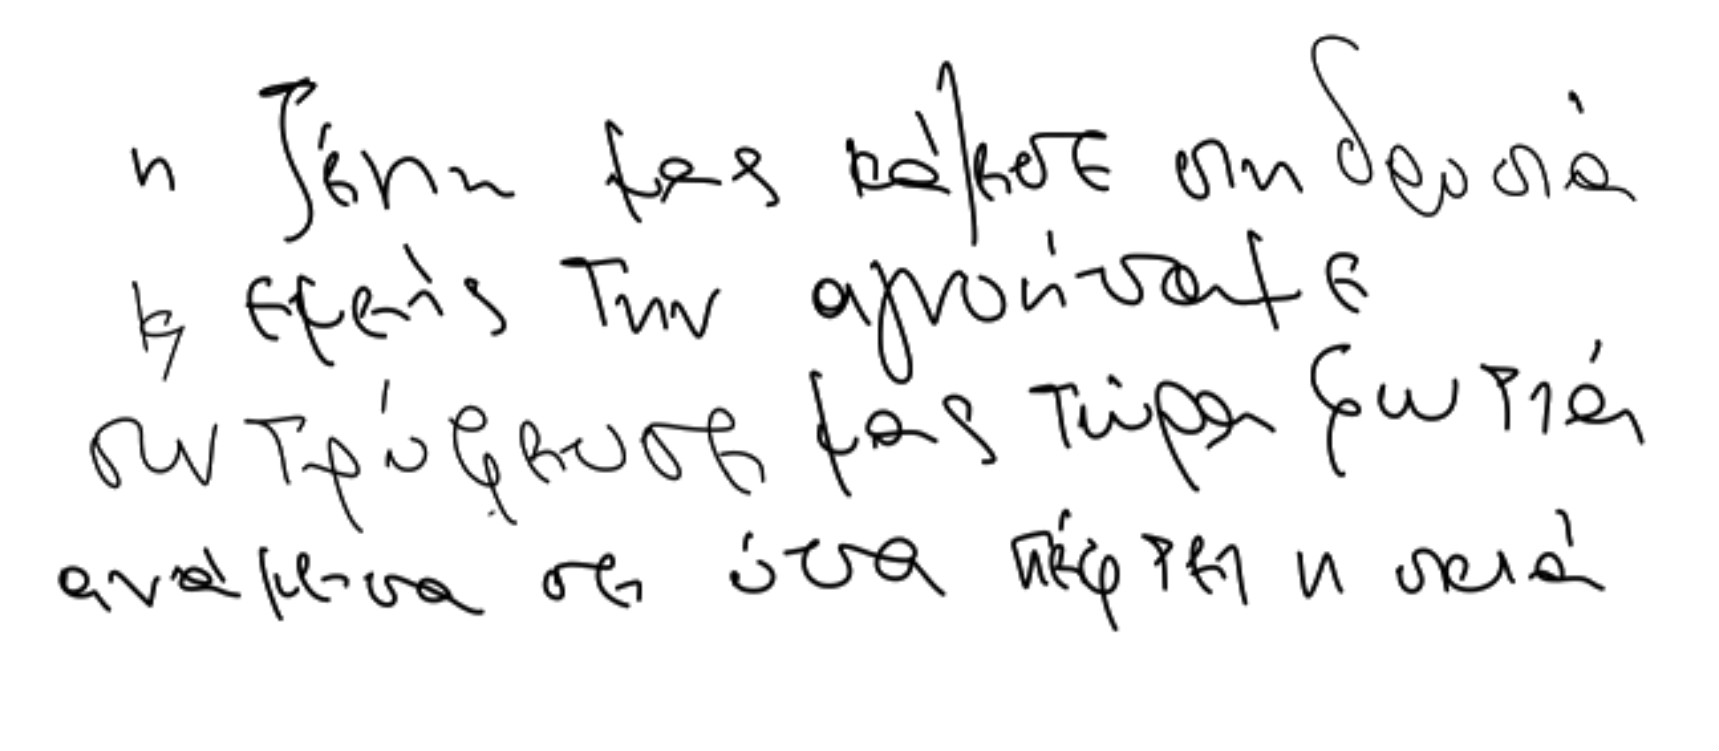 η μας κάλεσε στη δροσιά
κι εμείς την αγνοήσαμε
συντρόφευσε μας τώρα φωτιά
ανάμεσα σε όσα πέφτει η σκιά